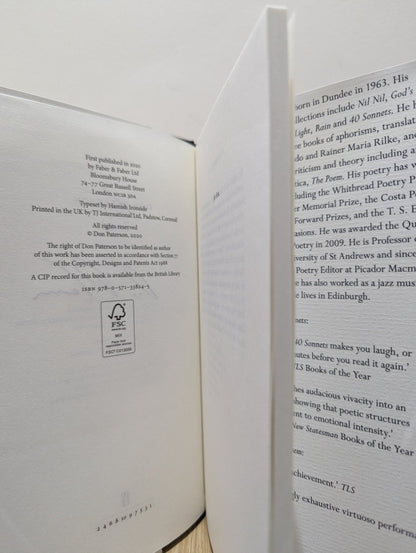 First published in 2020
by Faber & Faber Ltd
Bloomsbury House
74–77 Great Russell Street
London WC1B 3DA
Typeset by Hamish Ironside
Printed in the UK by TJ International Ltd, Padstow, Cornwall
All rights reserved
© Don Paterson, 2020
The right of Don Paterson to be identified as author
of this work has been asserted in accordance with Section 77
of the Copyright, Designs and Patents Act 1988
A CIP record for this book is available from the British Library
ISBN 978-0-571-33824-5
FSC
MIX
FSC® C013056
2 4 6 8 10 9 7 5 3 1
born in Dundee in 1963. His
llections include Nil Nil, God's
Light, Rain and 40 Sonnets. He
books of aphorisms, translat
do and Rainer Maria Rilke, and
criticism and theory including
ica, The Poem. His poetry has w
luding the Whitbread Poetry P
er Memorial Prize, the Costa P
Forward Prizes, and the T. S. E
asions. He was awarded the Qu
Poetry in 2009. He is Professor
versity of St Andrews and since
Poetry Editor at Picador Macm
e has also worked as a jazz mus
e lives in Edinburgh.
nnets:
40 Sonnets makes you laugh, or
nutes before you read it again.'
TLS Books of the Year
hes audacious vivacity into an
howing that poetic structures
ent to emotional intensity.'
New Statesman Books of the Year
em:
chievement.' TLS
ly exhaustive virtuoso perform